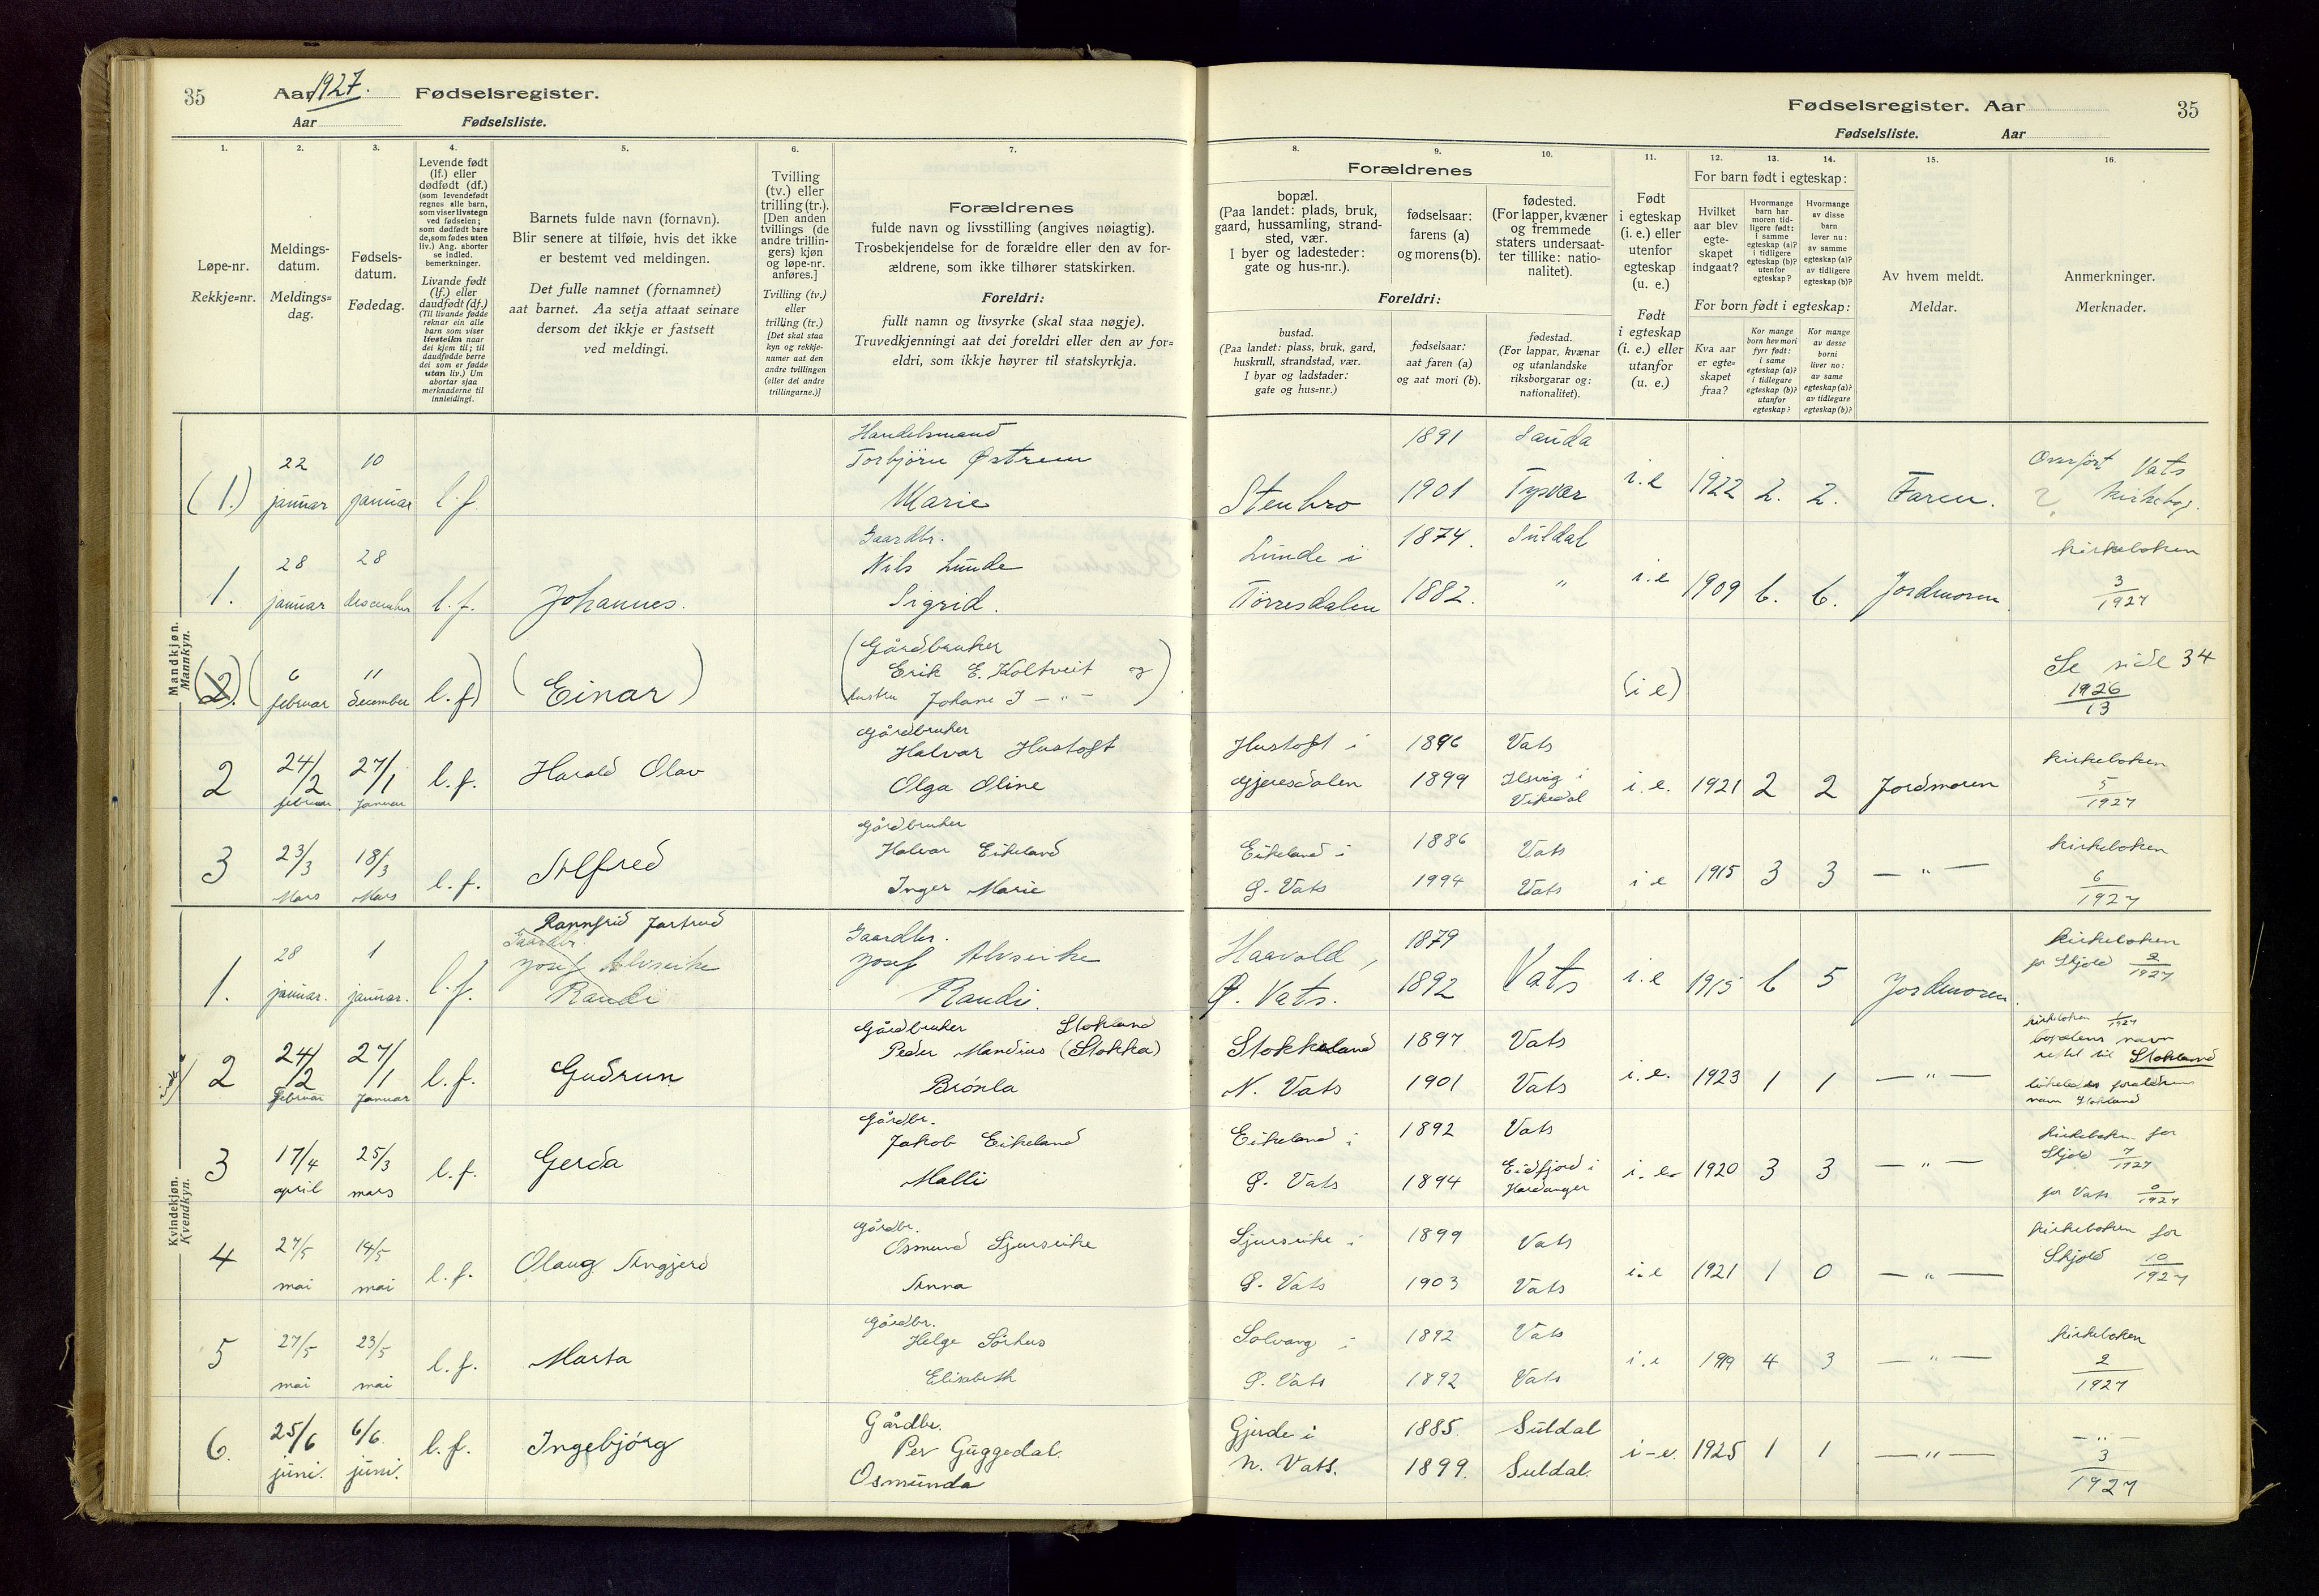 35 Aar 1927. Fødselsregister.
Aar Fødselsliste.
1. 2. 3. 4. 5. 6. 7.
Løpe-nr.
Rekkje=nr.
Meldings-
datum.
Meldings=
dag.
Fødsels-
datum.
Fødedag.
Levende født
(lf.) eller
dødfødt (df.)
(som levendefødt
regnes alle barn,
som viser livstegn
ved fødselen;
som dødfødt bare
de, som fødes uten
liv.) Ang. aborter
se indled.
bemerkninger.
Livande født
(lf.) eller
daudfødt (df.)
(Til livande fødde
reknar ein alle
barn som viser
livsteikn naar
dei kjem til; til
daudfødde berre
dei som er fødde
utan liv.) Um
abortar sjaa
merknaderne til
innleidingi.
Barnets fulde navn (fornavn).
Blir senere at tilføie, hvis det ikke
er bestemt ved meldingen.
Det fulle namnet (fornamnet)
aat barnet. Aa setja attaat seinare
dersom det ikkje er fastsett
ved meldingi.
Tvilling
(tv.) eller
trilling (tr.).
[Den anden
tvillings (de
andre trillin-
gers) kjøn
og løpe-nr.
anføres.]
Tvilling (tv.)
eller
trilling (tr.)
[Det skal staa
kyn og rekkje-
numer aat den
andre tvillingen
(eller dei andre
trillingarne.)]
Forældrenes
fulde navn og livsstilling (angives nøiagtig).
Trosbekjendelse for de forældre eller den av for-
ældrene, som ikke tilhører statskirken.
Foreldri:
fullt namn og livsyrke (skal staa nøgje).
Truvedkjenningi aat dei foreldri eller den av for=
eldri, som ikkje høyrer til statskyrkja.
Mandkjøn.
Mannkyn.
(1.) 22 januar 10 januar l.f. Handelsmand
Torbjörn Østrem
Marie
1. 28 januar 28 december l.f. Johannes. Gaardbr.
Nils Lunde
Sigrid.
(2.) ( 6 februar 11 december l.f) (Einar) (Gårdbruker
Erik E. Holtveit og
hustru Johane I — " —)
2 24/2 februar 27/1 Januar l.f. Harald Olav Gårdbruker
Halvar Hustoft
Olga Oline
3 23/3 Mars 18/3 Mars l.f. Alfred Gårdbruker
Halvar Eikeland
Inger Marie
Kvindekjøn.
Kvendkyn.
1. 28 januar. 1 januar. l.f. Rannfrid Jartrud
Gaardbr.
Josef Alvseike
Randi
Gaardbr.
Josef Alvseike
Randi.
2 24/2 Februar 27/1 Januar l.f. Gudrun Gårdbruker Stokland
Peder Mandius (Stokka)
Brönla
3 17/4 april 25/3 mars l.f. Gerda Gårdbr.
Jakob Eikeland
Malli
4 27/5 mai 14/5 mai l.f. Olaug Angjerd Gårdbr.
Osmund Sjurseike
Anna
5 27/5 mai 23/5 mai l.f. Marta Gårdbr.
Helge Sörhus
Elisabeth
6. 25/6 juni. 6/6. juni. l.f. Ingebjörg Gårdbr.
Per Guggedal.
Osmunda
Fødselsregister. Aar 35
Fødselsliste. Aar
8. 9. 10. 11. 12. 13. 14. 15. 16.
Forældrenes
bopæl.
(Paa landet: plads, bruk,
gaard, hussamling, strand-
sted, vær.
I byer og ladesteder:
gate og hus-nr.).
fødselsaar:
farens (a)
og morens (b).
fødested.
(For lapper, kvæner
og fremmede
staters undersaat-
ter tillike: natio-
nalitet).
Foreldri:
bustad.
(Paa landet: plass, bruk, gard,
huskrull, strandstad, vær.
I byar og ladstader:
gate og hus=nr.)
fødselsaar:
aat faren (a)
og aat mori (b).
fødestad.
(For lappar, kvænar
og utanlandske
riksborgarar og:
nationalitet).
Født
i egteskap
(i. e.) eller
utenfor
egteskap
(u. e.)
Født
i egteskap
(i. e.) eller
utanfor
(u. e.)
For barn født i egteskap:
Hvilket
aar blev
egte-
skapet
indgaat?
Hvormange
barn har
moren tid-
ligere født:
i samme
egteskap (a)?
i tidligere
egteskap (b)?
utenfor
egteskap?
Hvormange
av disse
barn
lever nu:
av samme
egteskap (a)?
av tidligere
egteskap (b)?
For born født i egteskap:
Kva aar
er egte-
skapet
fraa?
Kor mange
born hev mori
fyrr født:
i same
egteskap (a)?
i tidlegare
egteskap (b)?
utanfor
egteskap?
Kor mange
av desse
borni
liver no:
av same
egteskap (a)?
av tidlegare
egteskap (b)?
Av hvem meldt.
Meldar.
Anmerkninger.
Merknader.
Stenbro 1891 1901 Sauda Tysvær i.e 1922 2. 2. Faren. Overført Vats
? kirkebog.
Lunde i
Törresdalen 1874. 1882. Suldal " i.e 1909 6. 6. Jordmoren. kirkeboken
3/1927
(i e) Se side 34
1926/13
Hustoft i
Gjeresdalen 1896 1899 Vats Ilsvig i
Vikedal i.e. 1921 2 2 Jordmoren kirkeboken
5/1927
Eikeland i
Ö. Vats 1886 1994 Vats Vats i e 1915 3 3 — " — kirkeboken
6/1927
Haavold,
Ø. Vats. 1879 1892 Vats i.e 1915 6 5 Jordmoren. kirkeboken
for Skjold 2/1927
Stokkeland
N. Vats 1897 1901 Vats Vats i.e. 1923 1 1 — " — kirkeboken 1/1927
bopælens navn
rettet til Stokland
likeledes foreldrenes
navn Stokland
Eikeland i
Ö. Vats 1892 1894 Vats Eidfjord i
Hardanger i.e. 1920 3 3 — " — kirkeboken for
Skjold 7/1927
for Vats 0/1927
Sjurseike i
Ö. Vats 1899 1903 Vats Vats i.e 1921 1 0 — " — kirkeboken for
Skjold 10/1927
Solvang i
Ö. Vats 1892 1892 Vats Vats i.e 1919 4 3 — " — kirkeboken
2/1927
Gjerde i
N. Vats. 1885. 1899. Suldal Suldal. i-e. 1925 1 1 — " — — " —
3/1927